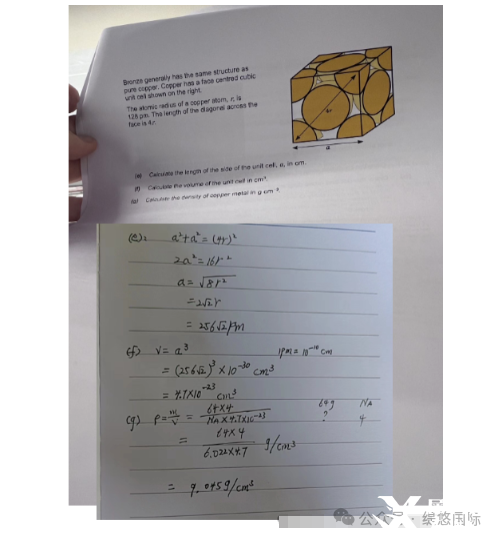 Bronze generally has the same structure as
pure copper. Copper has a face centred cubic
unit cell shown on the right.
The atomic radius of a copper atom, r, is
128 pm. The length of the diagonal across the
face is 4r.
4r
a
(e) Calculate the length of the side of the unit cell, a, in cm.
(f) Calculate the volume of the unit cell in cm³.
(g) Calculate the density of copper metal in g cm⁻³.
(e): a²+a²=(4r)²
2a²=16r²
a=√8r²
=2√2r
=256√2pm
(f) V=a³ 1pm=10⁻¹⁰cm
=(256√2)³×10⁻³⁰cm³
=4.7×10⁻²³cm³
(g) ρ=m/V=64×4/NA×4.7×10⁻²³ 64g NA
? 4
=64×4/6.022×4.7 g/cm³
=9.045g/cm³
公众号·绿悠国际